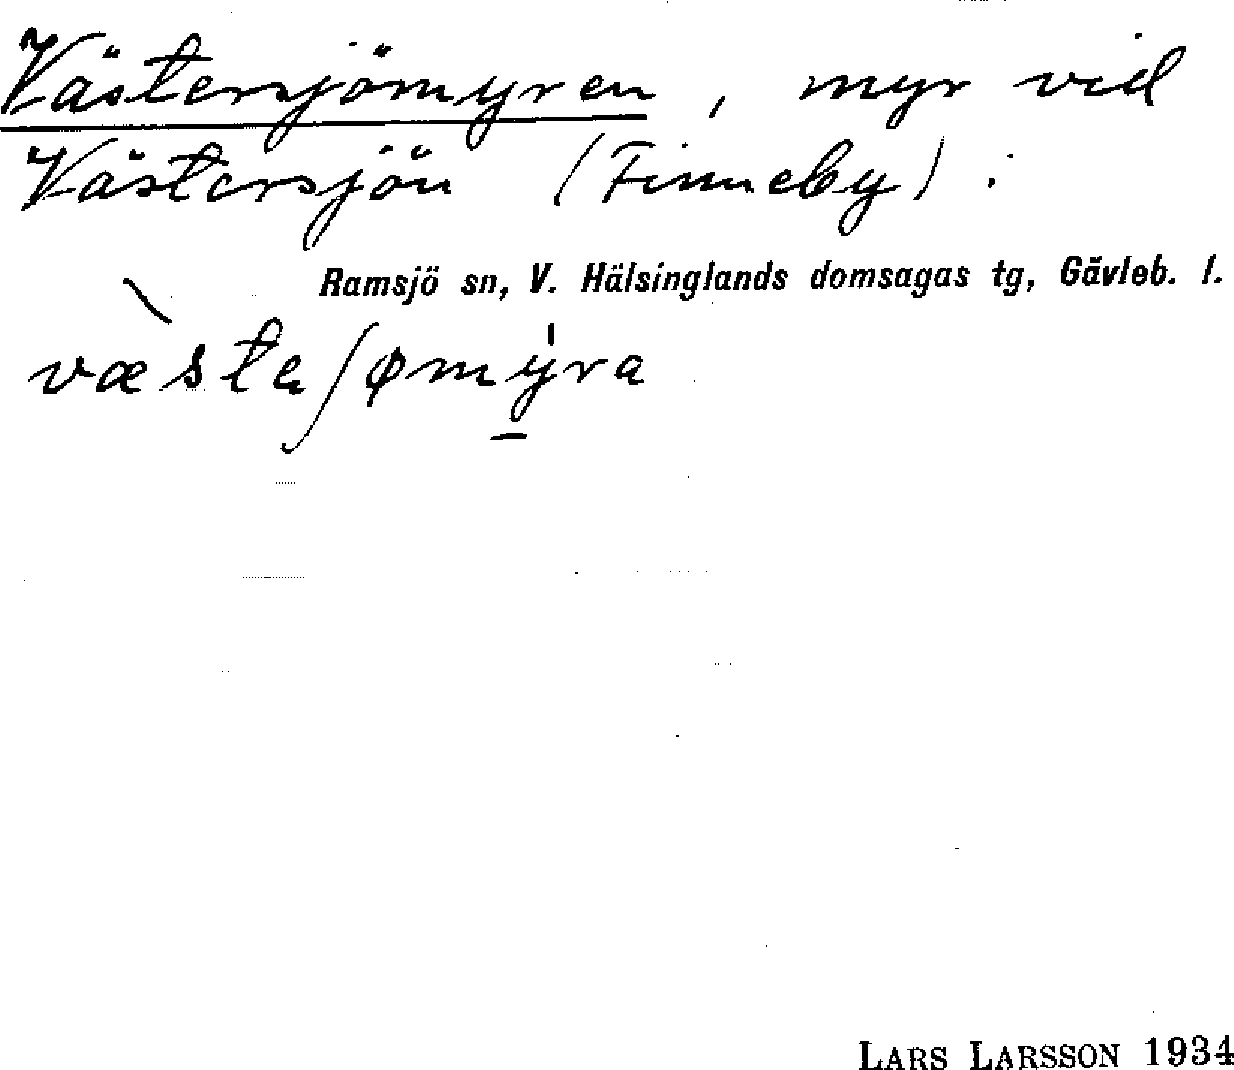 Västersjömyren, myr vid
Västersjön (Finneby):
Ramsjö sn, V. Hälsinglands domsagas tg, Gävleb. l.
væ̀staʃømýra
LARS LARSSON 1934